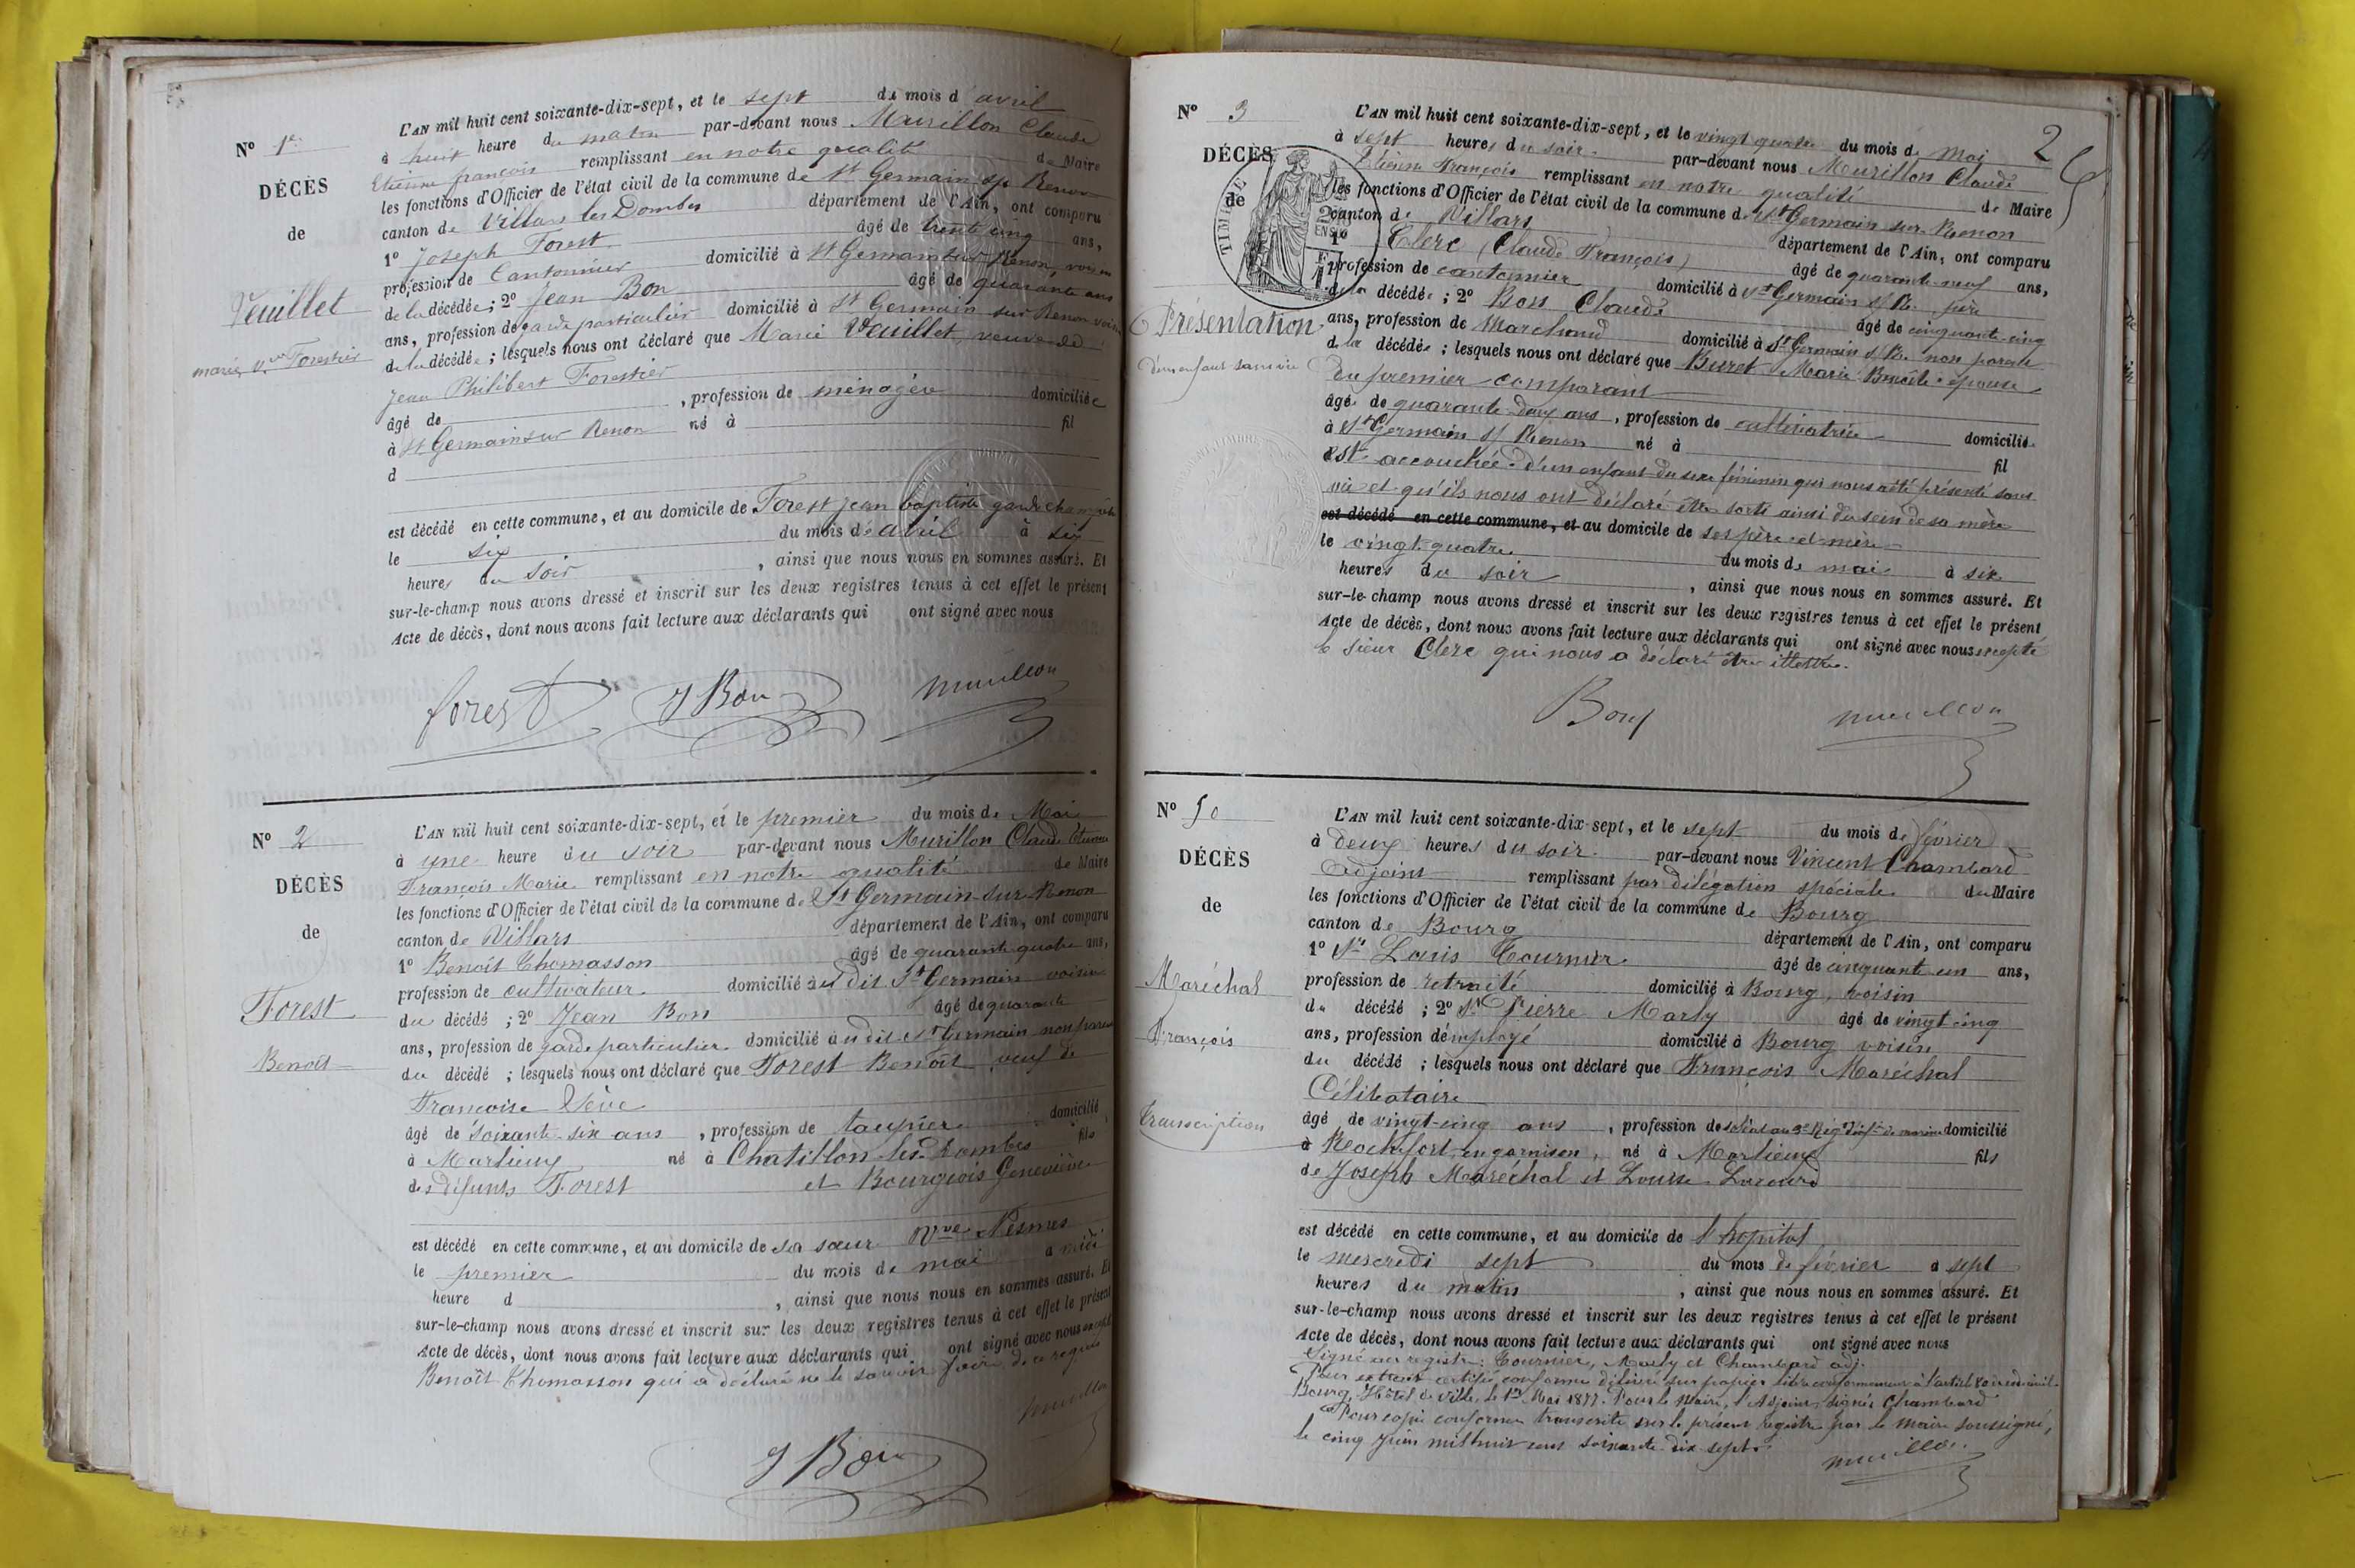 N° 1er
DÉCÈS
de
Veuillet
marie, Vve Forestier
L'AN mil huit cent soixante-dix-sept, et le sept du mois d'avril
à huit heure du matin par-devant nous Murillon Claude
Etienne françois remplissant en notre qualité de Maire
les fonctions d'Officier de l'état civil de la commune de St Germain s/ Renon
canton de Villars les Dombes département de l'Ain, ont comparu
1° Joseph Forest âgé de trente cinq ans,
profession de Cantonnier domicilié à St Germain sur Renon, voisin
de la décédée; 2° Jean Bon âgé de quarante ans
ans, profession de garde particulier domicilié à St Germain sur Renon voisin
de la décédée; lesquels nous ont déclaré que Marie Veuillet, veuve de
Jean Philibert Forestier
âgé de , profession de ménagère domiciliée
à St Germain sur Renon né à fil
d
est décédé en cette commune, et au domicile de Forest jean baptiste garde champêtre
le six du mois de avril à six
heures du soir , ainsi que nous nous en sommes assuré. Et
sur-le-champ nous avons dressé et inscrit sur les deux registres tenus à cet effet le présent
Acte de décès, dont nous avons fait lecture aux déclarants qui ont signé avec nous
forest J Bon murillon
N° 2
DÉCÈS
de
Forest
Benoît
L'AN mil huit cent soixante-dix-sept, et le premier du mois de Mai
à une heure du soir par-devant nous Murillon Claude Etienne
François Marie remplissant en notre qualité de Maire
les fonctions d'Officier de l'état civil de la commune de St Germain-sur-Renon
canton de Villars département de l'Ain, ont comparu
1° Benoît Thomasson âgé de quarante quatre ans,
profession de cultivateur domicilié au dit St Germain voisin
du décédé; 2° Jean Bon âgé de quarante
ans, profession de garde particulier domicilié au dit St Germain non parent
du décédé; lesquels nous ont déclaré que Forest Benoît, veuf de
Françoise Sève
âgé de soixante-six ans , profession de taupier domicilié
à Marlieux né à Chatillon-les-Dombes fils
des défunts Forest et Bourgeois Geneviève
est décédé en cette commune, et au domicile de sa sœur Vve Nesmes
le premier du mois de mai à midi
heure d , ainsi que nous nous en sommes assuré. Et
sur-le-champ nous avons dressé et inscrit sur les deux registres tenus à cet effet le présent
Acte de décès, dont nous avons fait lecture aux déclarants qui ont signé avec nous excepté
Benoît Thomasson qui a déclaré ne le savoir faire de ce requis
murillon
J Bon
2
N° 3
DÉCÈS
de
TIMBRE
Présentation
d'un enfant sans vie
L'AN mil huit cent soixante-dix-sept, et le vingt quatre du mois de Mai
à sept heures du soir par-devant nous Murillon Claude
Etienne François remplissant en notre qualité de Maire
les fonctions d'Officier de l'état civil de la commune de St Germain sur Renon
canton de Villars département de l'Ain, ont comparu
1° Clerc (Claude François) âgé de quarante-neuf ans,
profession de cantonnier domicilié à St Germain s/ Re. père
de la décédée; 2° Bon Claude âgé de cinquante-cinq
ans, profession de Marchand domicilié à St Germain s/ Re. non parente
de la décédée; lesquels nous ont déclaré que Buret Marie Benoîte épouse
du premier comparant
âgé de quarante deux ans, profession de cultivatrice domicilié
à St Germain s/ Renon né à fil
est accouchée d'un enfant du sexe féminin qui nous a été présenté sans
vie et qu'ils nous ont déclaré être sorti ainsi du sein de sa mère
est décédé en cette commune, et au domicile de ses père et mère
le vingt-quatre du mois de mai à six
heures du soir , ainsi que nous nous en sommes assuré. Et
sur-le-champ nous avons dressé et inscrit sur les deux registres tenus à cet effet le présent
Acte de décès, dont nous avons fait lecture aux déclarants qui ont signé avec nous excepté
le sieur Clerc qui nous a déclaré être illettré.
Bon murillon
N° 50
DÉCÈS
de
Maréchal
François
Transcription
L'AN mil huit cent soixante-dix-sept, et le sept du mois de février
à deux heures du soir par-devant nous Vincent Chambard
Adjoint remplissant par délégation spéciale du Maire
les fonctions d'Officier de l'état civil de la commune de Bourg
canton de Bourg département de l'Ain, ont comparu
1° Sr Louis Tournier âgé de cinquante un ans,
profession de retraité domicilié à Bourg, voisin
du décédé; 2° Sr Pierre Marly âgé de vingt-cinq
ans, profession d'employé domicilié à Bourg voisin
du décédé; lesquels nous ont déclaré que François Maréchal
Célibataire
âgé de vingt-cinq ans , profession de soldat au 3e Régt d'infie de marine domicilié
à Rochefort en garnison, né à Marlieux fils
de Joseph Maréchal et Louise
est décédé en cette commune, et au domicile de l'hopital
le mercredi sept du mois de février à sept
heures du matin , ainsi que nous nous en sommes assuré. Et
sur-le-champ nous avons dressé et inscrit sur les deux registres tenus à cet effet le présent
Acte de décès, dont nous avons fait lecture aux déclarants qui ont signé avec nous
Signé au registre: Tournier, Marly et Chambard adj.
Pour extrait certifié conforme délivré sur papier libre conformément à l'article 80 du code civil.
Bourg, Hôtel de Ville, le 1er Mai 1877. Pour le Maire, l'Adjoint, signé Chambard
Pour copie conforme transcrite sur le présent registre par le maire soussigné,
le cinq juin mil huit cent soixante-dix-sept.
murillon